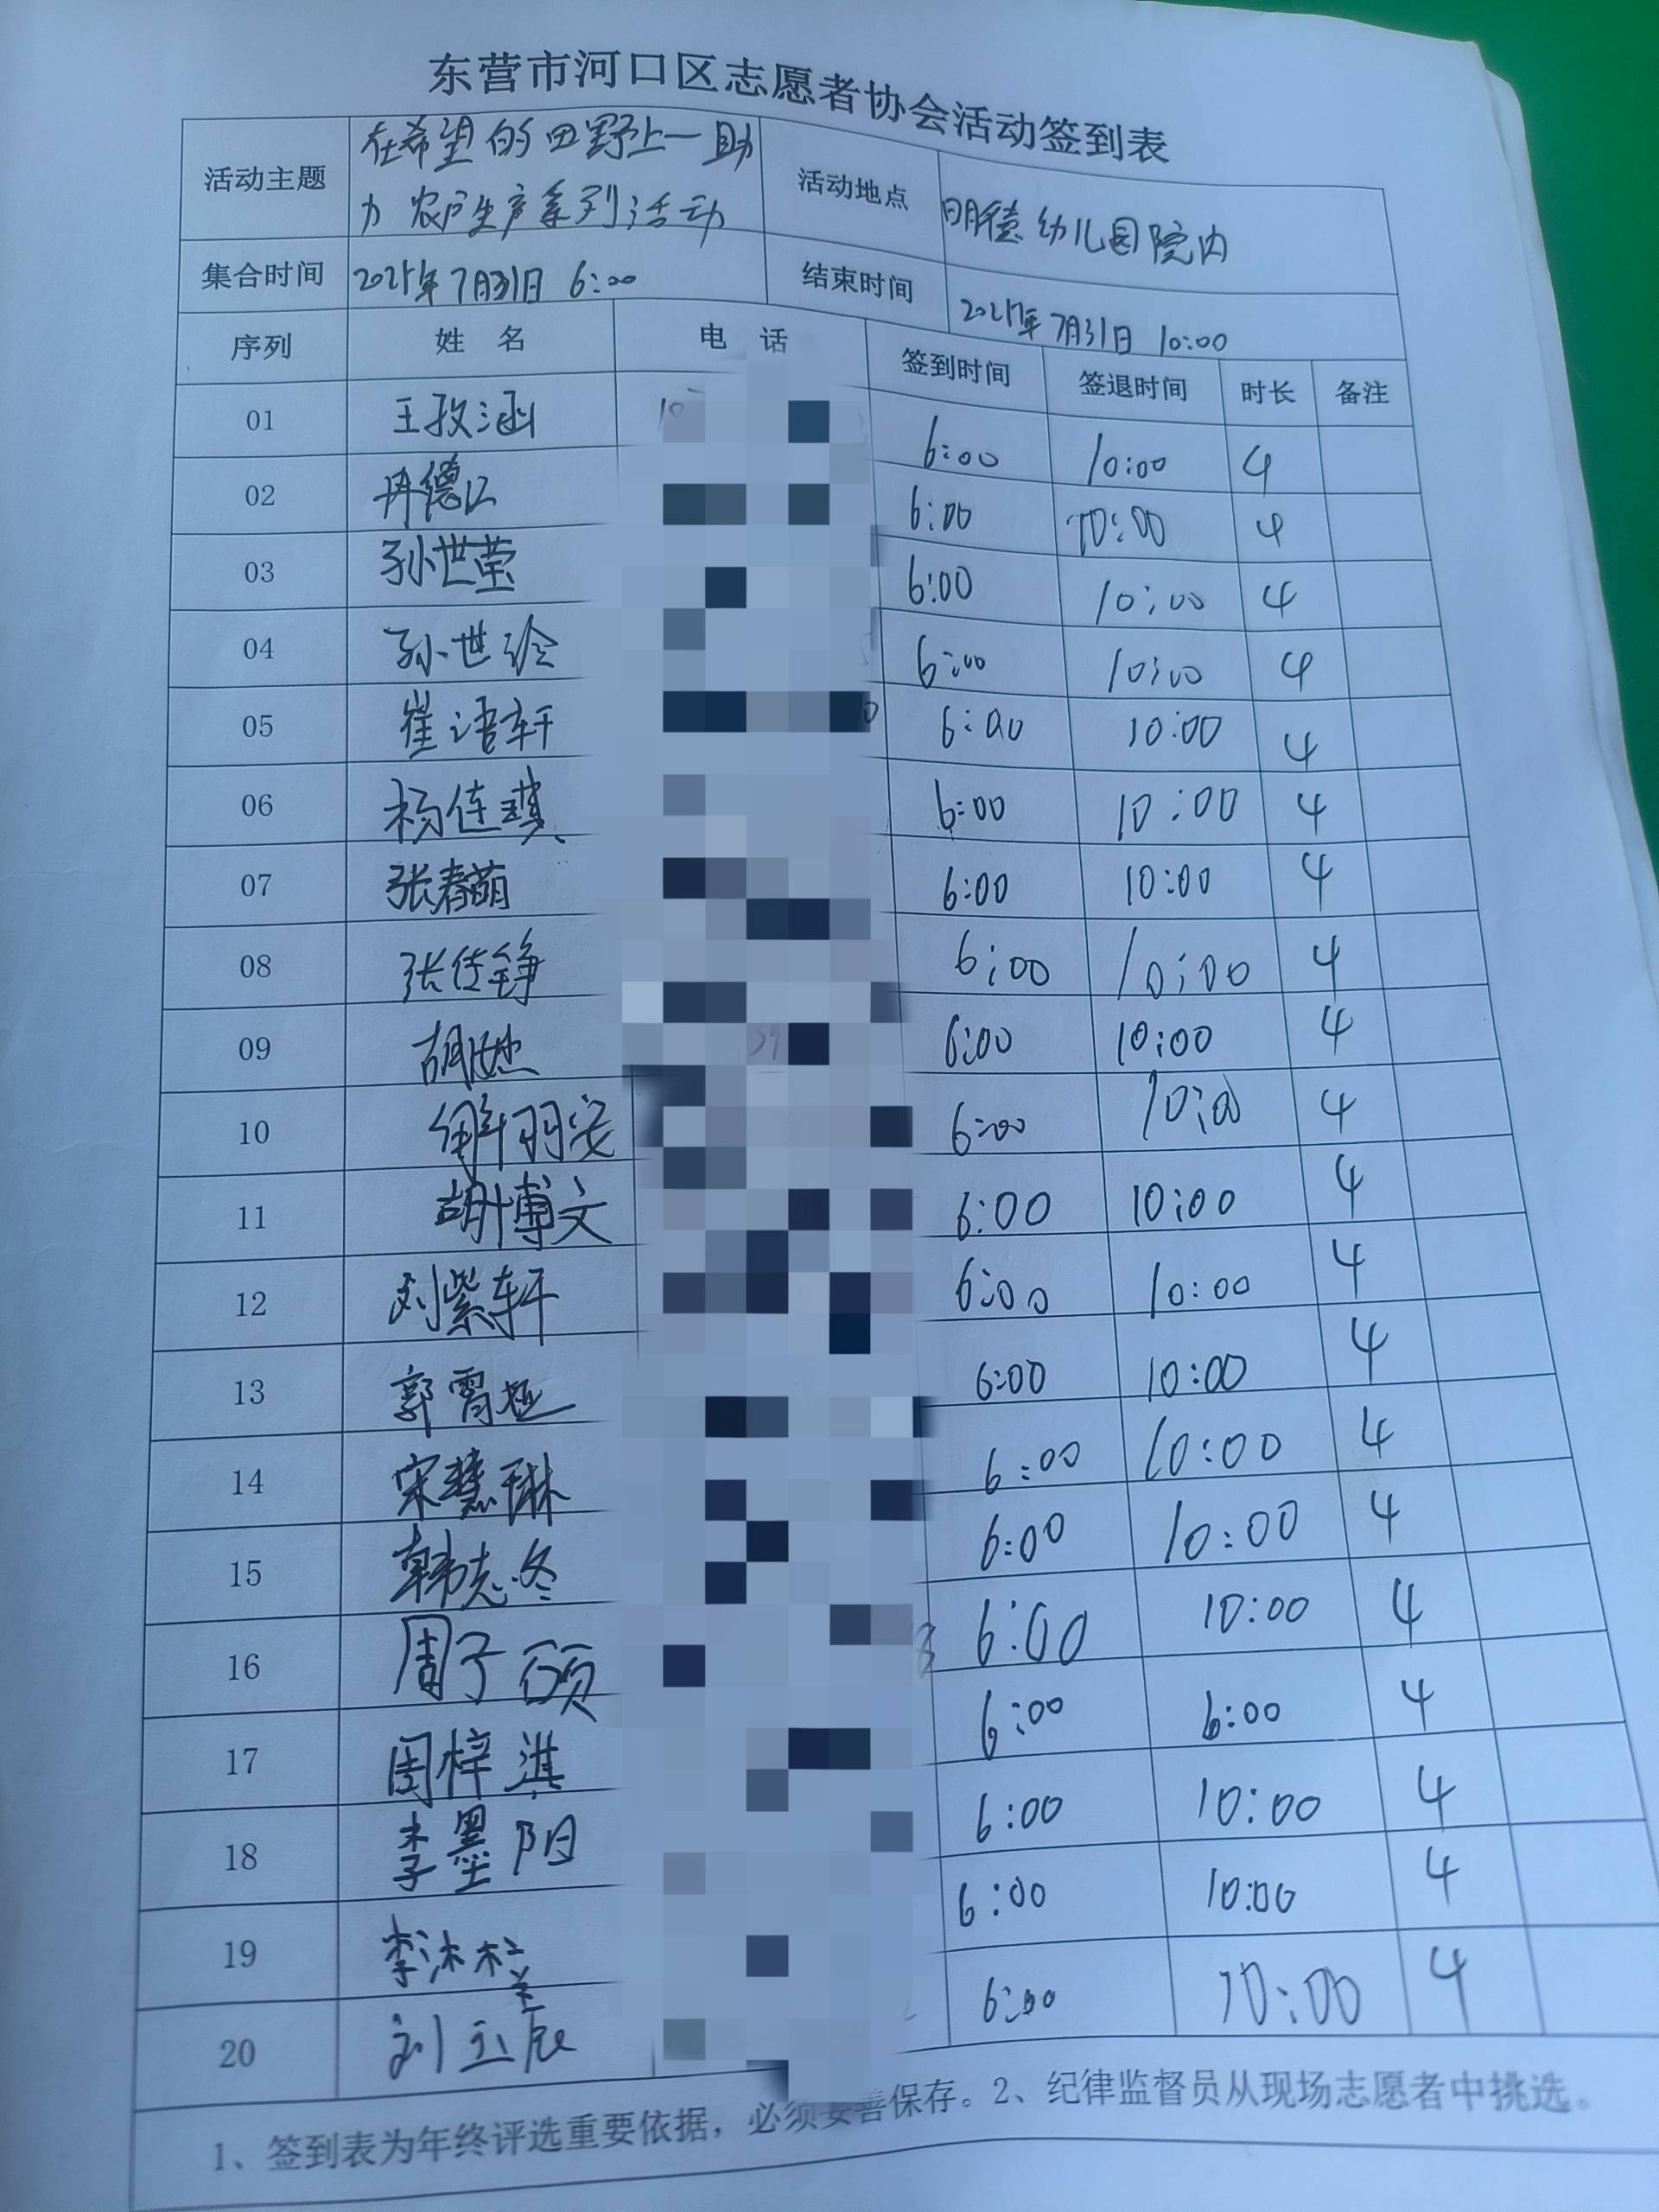 东营市河口区志愿者协会活动签到表
活动主题 在希望的田野上一助力农户生产系列活动 活动地点 明德幼儿园院内
集合时间 2025年7月31日 6:00 结束时间 2025年7月31日 10:00
序列 姓 名 电 话 签到时间 签退时间 时长 备注
01 王孜涵 6:00 10:00 4
02 冉德江 6:00 10:00 4
03 孙世莹 6:00 10:00 4
04 孙世 6:00 10:00 4
05 崔语轩 6:00 10:00 4
06 杨佳琪 6:00 10:00 4
07 张春萌 6:00 10:00 4
08 张佳铮 6:00 10:00 4
09 胡 6:00 10:00 4
10 解羽安 6:00 10:00 4
11 胡博文 6:00 10:00 4
12 刘紫轩 6:00 10:00 4
13 郭霄 6:00 10:00 4
14 宋慧琳 6:00 10:00 4
15 韩志冬 6:00 10:00 4
16 周子硕 6:00 10:00 4
17 周梓淇 6:00 6:00 4
18 李墨阳 6:00 10:00 4
19 李沐 6:00 10:00 4
20 刘立辰 6:00 10:00 4
1、签到表为年终评选重要依据，必须妥善保存。2、纪律监督员从现场志愿者中挑选。